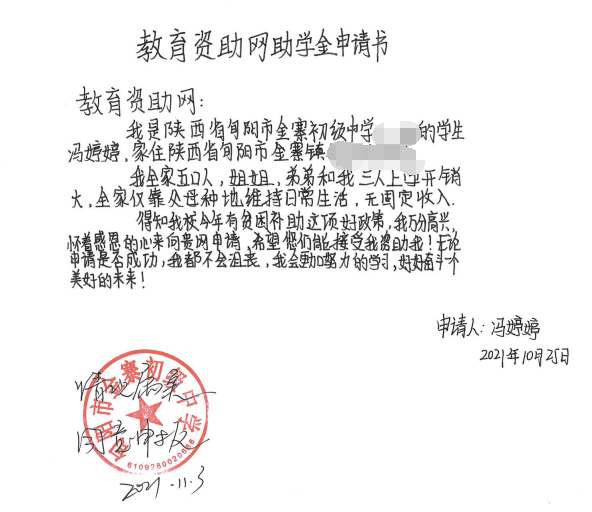 教育资助网助学金申请书
教育资助网:
我是陕西省旬阳市金寨初级中学 的学生
冯婷婷,家住陕西省旬阳市金寨镇
我全家五口人,姐姐,弟弟和我三人上学开销
大,全家仅靠父母种地维持日常生活,无固定收入.
得知我校今年有贫困补助这项好政策,我万分高兴,
怀着感恩的心来向贵网申请,希望您们能接受我资助我!无论
申请是否成功,我都不会沮丧,我会更加努力的学习,好好奋斗个
美好的未来!
申请人:冯婷婷
2021年10月25日
情况属实
同意申报
2021.11.3
旬阳市金寨初级中学
6109280020688